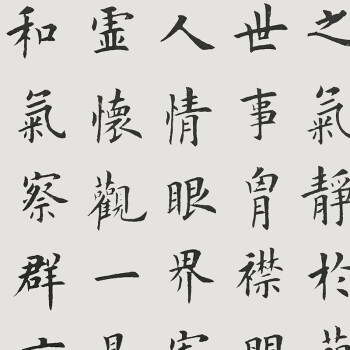 之氣靜於
世事胷襟
人情眼界
霊懷觀一
和氣察群